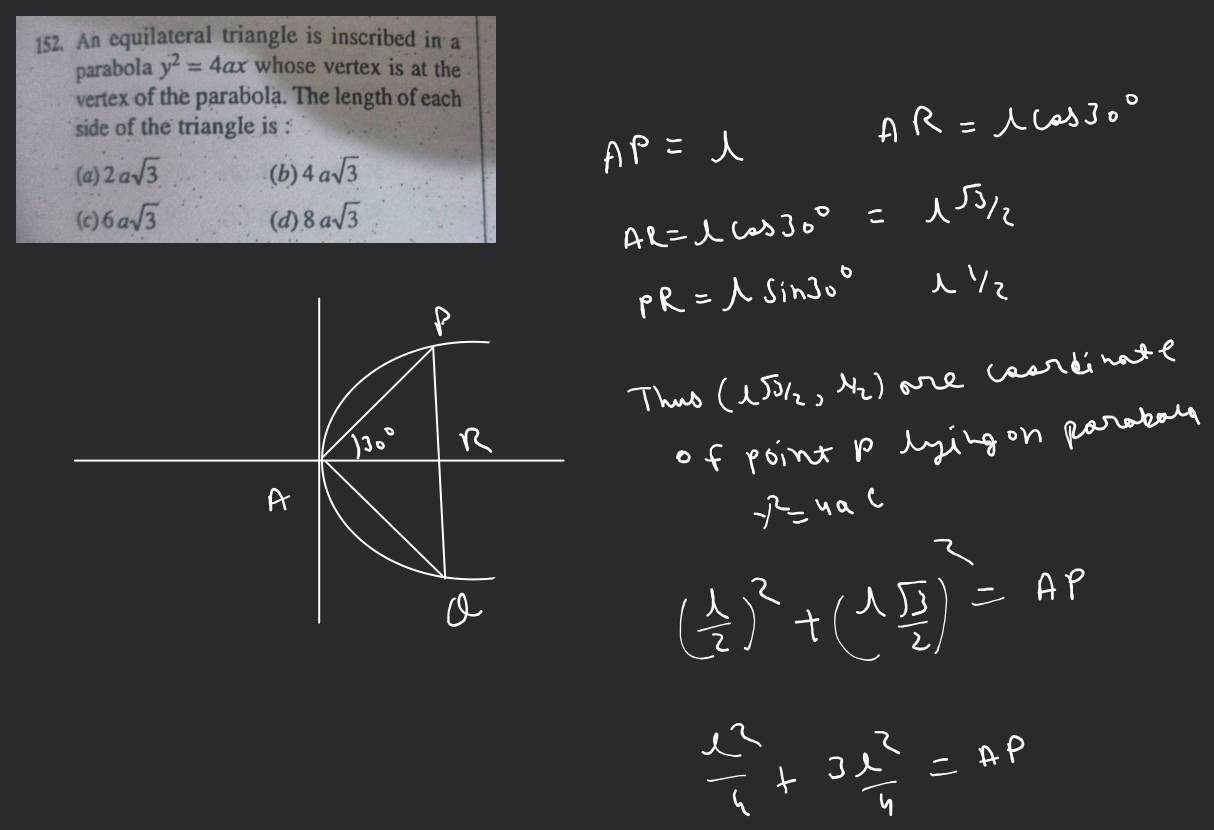 152. An equilateral triangle is inscribed in a
parabola y² = 4ax whose vertex is at the
vertex of the parabola. The length of each
side of the triangle is :
(a) 2 a√3 (b) 4 a√3
(c) 6 a√3 (d) 8 a√3
P
30°
R
A
Q
AP = l AR = l cos30°
AR = l cos30° = l √3/2
PR = l sin30° l 1/2
Thus (l√3/2, l/2) are coordinate
of point P lying on parabola
y² = 4a
(l/2)² + (l √3/2)² = AP
l²/4 + 3l²/4 = AP